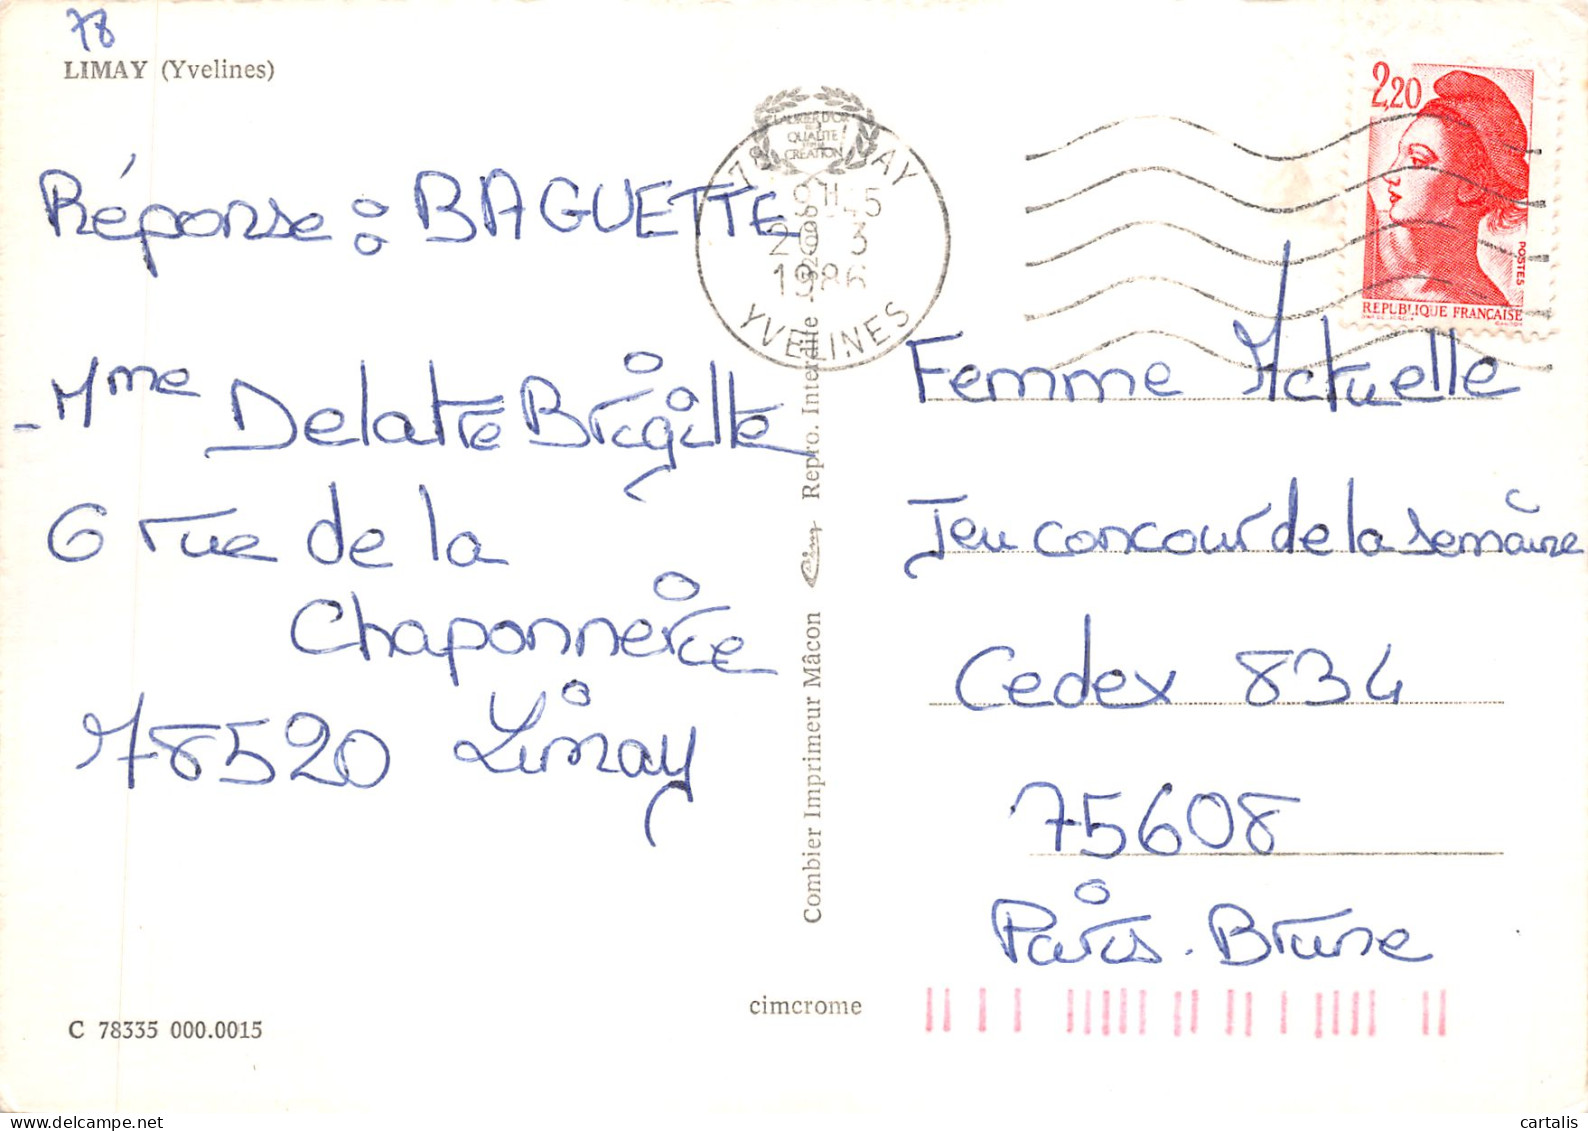 78
LIMAY (Yvelines)
Réponse : BAGUETTE
Mme Delatre Brigitte
6 rue de la
Chaponnerie
78520 Limay
C 78335 000.0015
LAURIER D'OR
QUALITÉ
CRÉATION
78 AY
9H 45
20 3
1986
YVELINES
Combier Imprimeur Mâcon Cim Repro. Interdite
cimcrome
2,20
POSTES
REPUBLIQUE FRANÇAISE
Femme Actuelle
Jeu concour de la semaine
Cedex 834
75608
Paris. Brune
cartalis